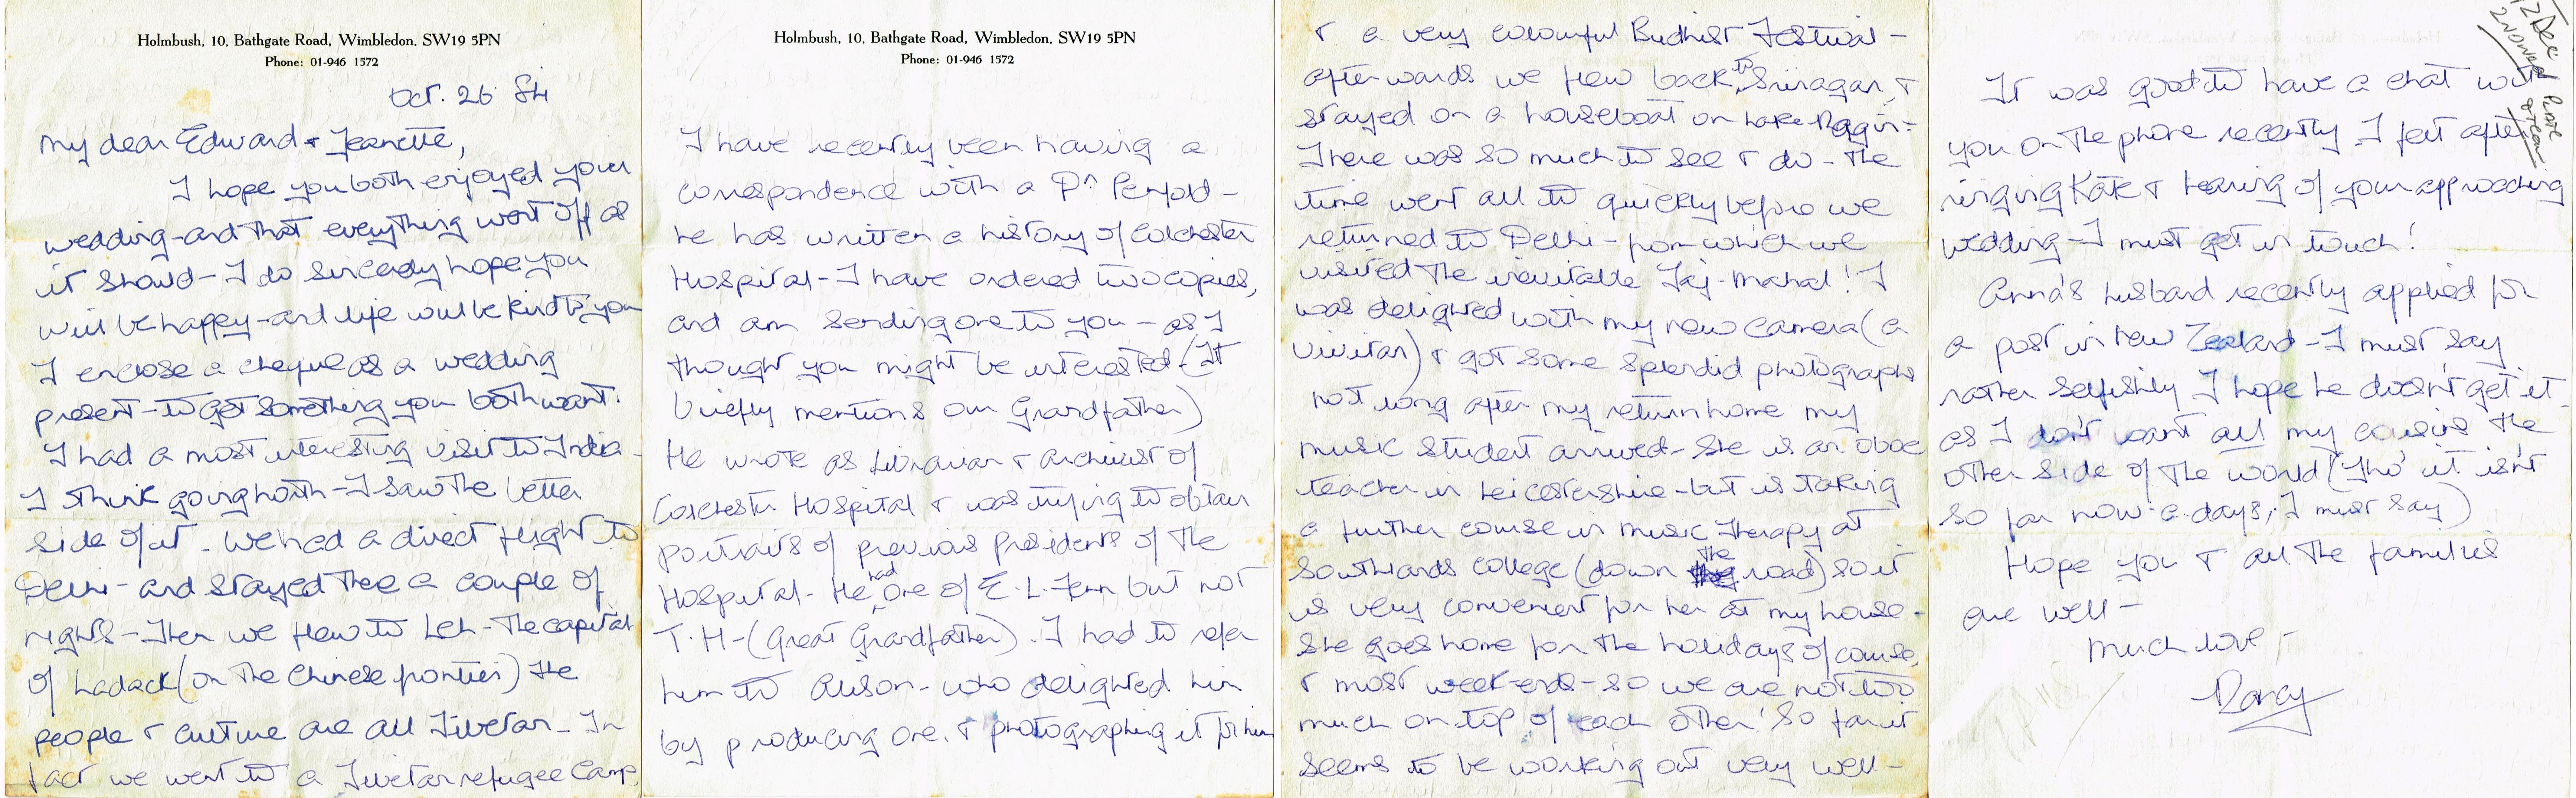 Holmbush, 10, Bathgate Road, Wimbledon, SW19 5PN
Phone: 01-946 1572
Oct. 26 84
My dear Edward & Jeanette,
I hope you both enjoyed your
wedding - and that everything went off as
it should - I do sincerely hope you
will be happy - and life will be kind to you
I enclose a cheque as a wedding
present - to get something you both want.
I had a most interesting visit to India -
I think going north - I saw the better
side of it. We had a direct flight to
Delhi - and stayed there a couple of
nights - then we flew to Leh - the capital
of Ladack (on the Chinese frontier) the
people & culture are all Tibetan - In
fact we went to a Tibetan refugee Camp
Holmbush, 10, Bathgate Road, Wimbledon, SW19 5PN
Phone: 01-946 1572
I have recently been having a
correspondence with a Dr Penfold -
he has written a history of Colchester
Hospital - I have ordered two copies,
and am sending one to you - as I
thought you might be interested - (It
briefly mentions our Grandfather)
He wrote as Librarian & archivist of
Colchester Hospital & was trying to obtain
portraits of previous presidents of the
Hospital - He had one of E. L. Fenn but not
T. H - (Great Grandfather). I had to refer
him to Alison - who delighted him
by producing one, & photographing it for him
& a very colourful Budhist Festival -
afterwards we flew back to Srinagar, &
stayed on a houseboat on Lake Nagin -
There was so much to see & do - the
time went all to quickly before we
returned to Delhi - from which we
visited the inevitable Taj-Mahal! I
was delighted with my new camera (a
Vivitar) & got some splendid photographs
not long after my return home my
music student arrived - She is an oboe
teacher in Leicestershire - but is taking
a further course in music therapy at
Southlands College (down the road) so it
is very convenient for her at my house -
She goes home for the holidays of course,
& most week-ends - so we are not too
much on top of each other! So far it
seems to be working out very well -
12 Dec
It was good to have a chat with
you on the phone recently I felt after
ringing Kate & hearing of your approaching
wedding - I must get in touch!
Anna's husband recently applied for
a post in New Zealand - I must say
rather selfishly I hope he doesn't get it -
as I don't want all my cousins the
other side of the world (tho' it isn't
so far now-a-days, I must say)
Hope you & all the families
are well -
Much love -
Darcy